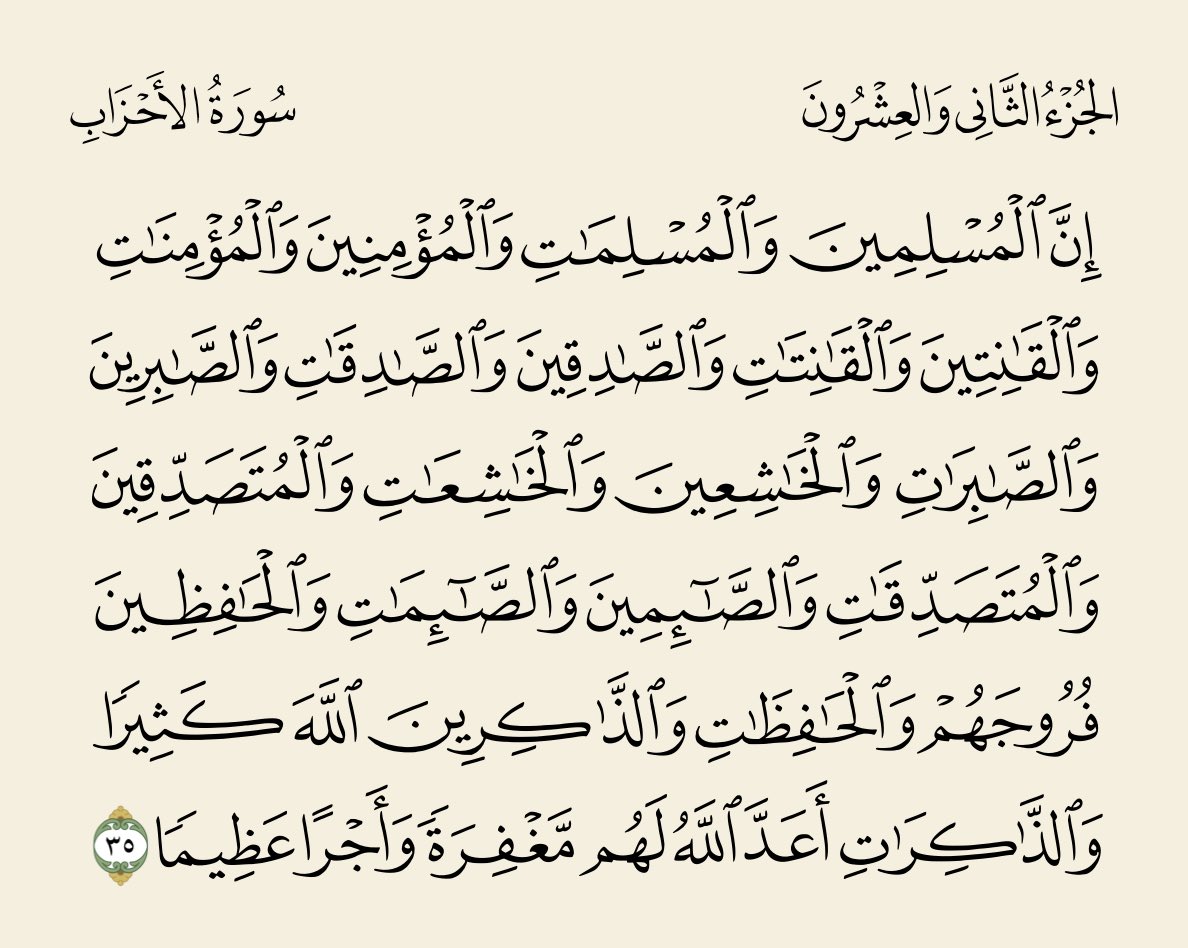 الجُزْءُ الثَّانِى وَالعِشْرُونَ
سُورَةُ الأَحْزَابِ
إِنَّ ٱلْمُسْلِمِينَ وَٱلْمُسْلِمَـٰتِ وَٱلْمُؤْمِنِينَ وَٱلْمُؤْمِنَـٰتِ
وَٱلْقَـٰنِتِينَ وَٱلْقَـٰنِتَـٰتِ وَٱلصَّـٰدِقِينَ وَٱلصَّـٰدِقَـٰتِ وَٱلصَّـٰبِرِينَ
وَٱلصَّـٰبِرَٰتِ وَٱلْخَـٰشِعِينَ وَٱلْخَـٰشِعَـٰتِ وَٱلْمُتَصَدِّقِينَ
وَٱلْمُتَصَدِّقَـٰتِ وَٱلصَّـٰٓئِمِينَ وَٱلصَّـٰٓئِمَـٰتِ وَٱلْحَـٰفِظِينَ
فُرُوجَهُمْ وَٱلْحَـٰفِظَـٰتِ وَٱلذَّٰكِرِينَ ٱللَّهَ كَثِيرًا
وَٱلذَّٰكِرَٰتِ أَعَدَّ ٱللَّهُ لَهُم مَّغْفِرَةً وَأَجْرًا عَظِيمًا ٣٥